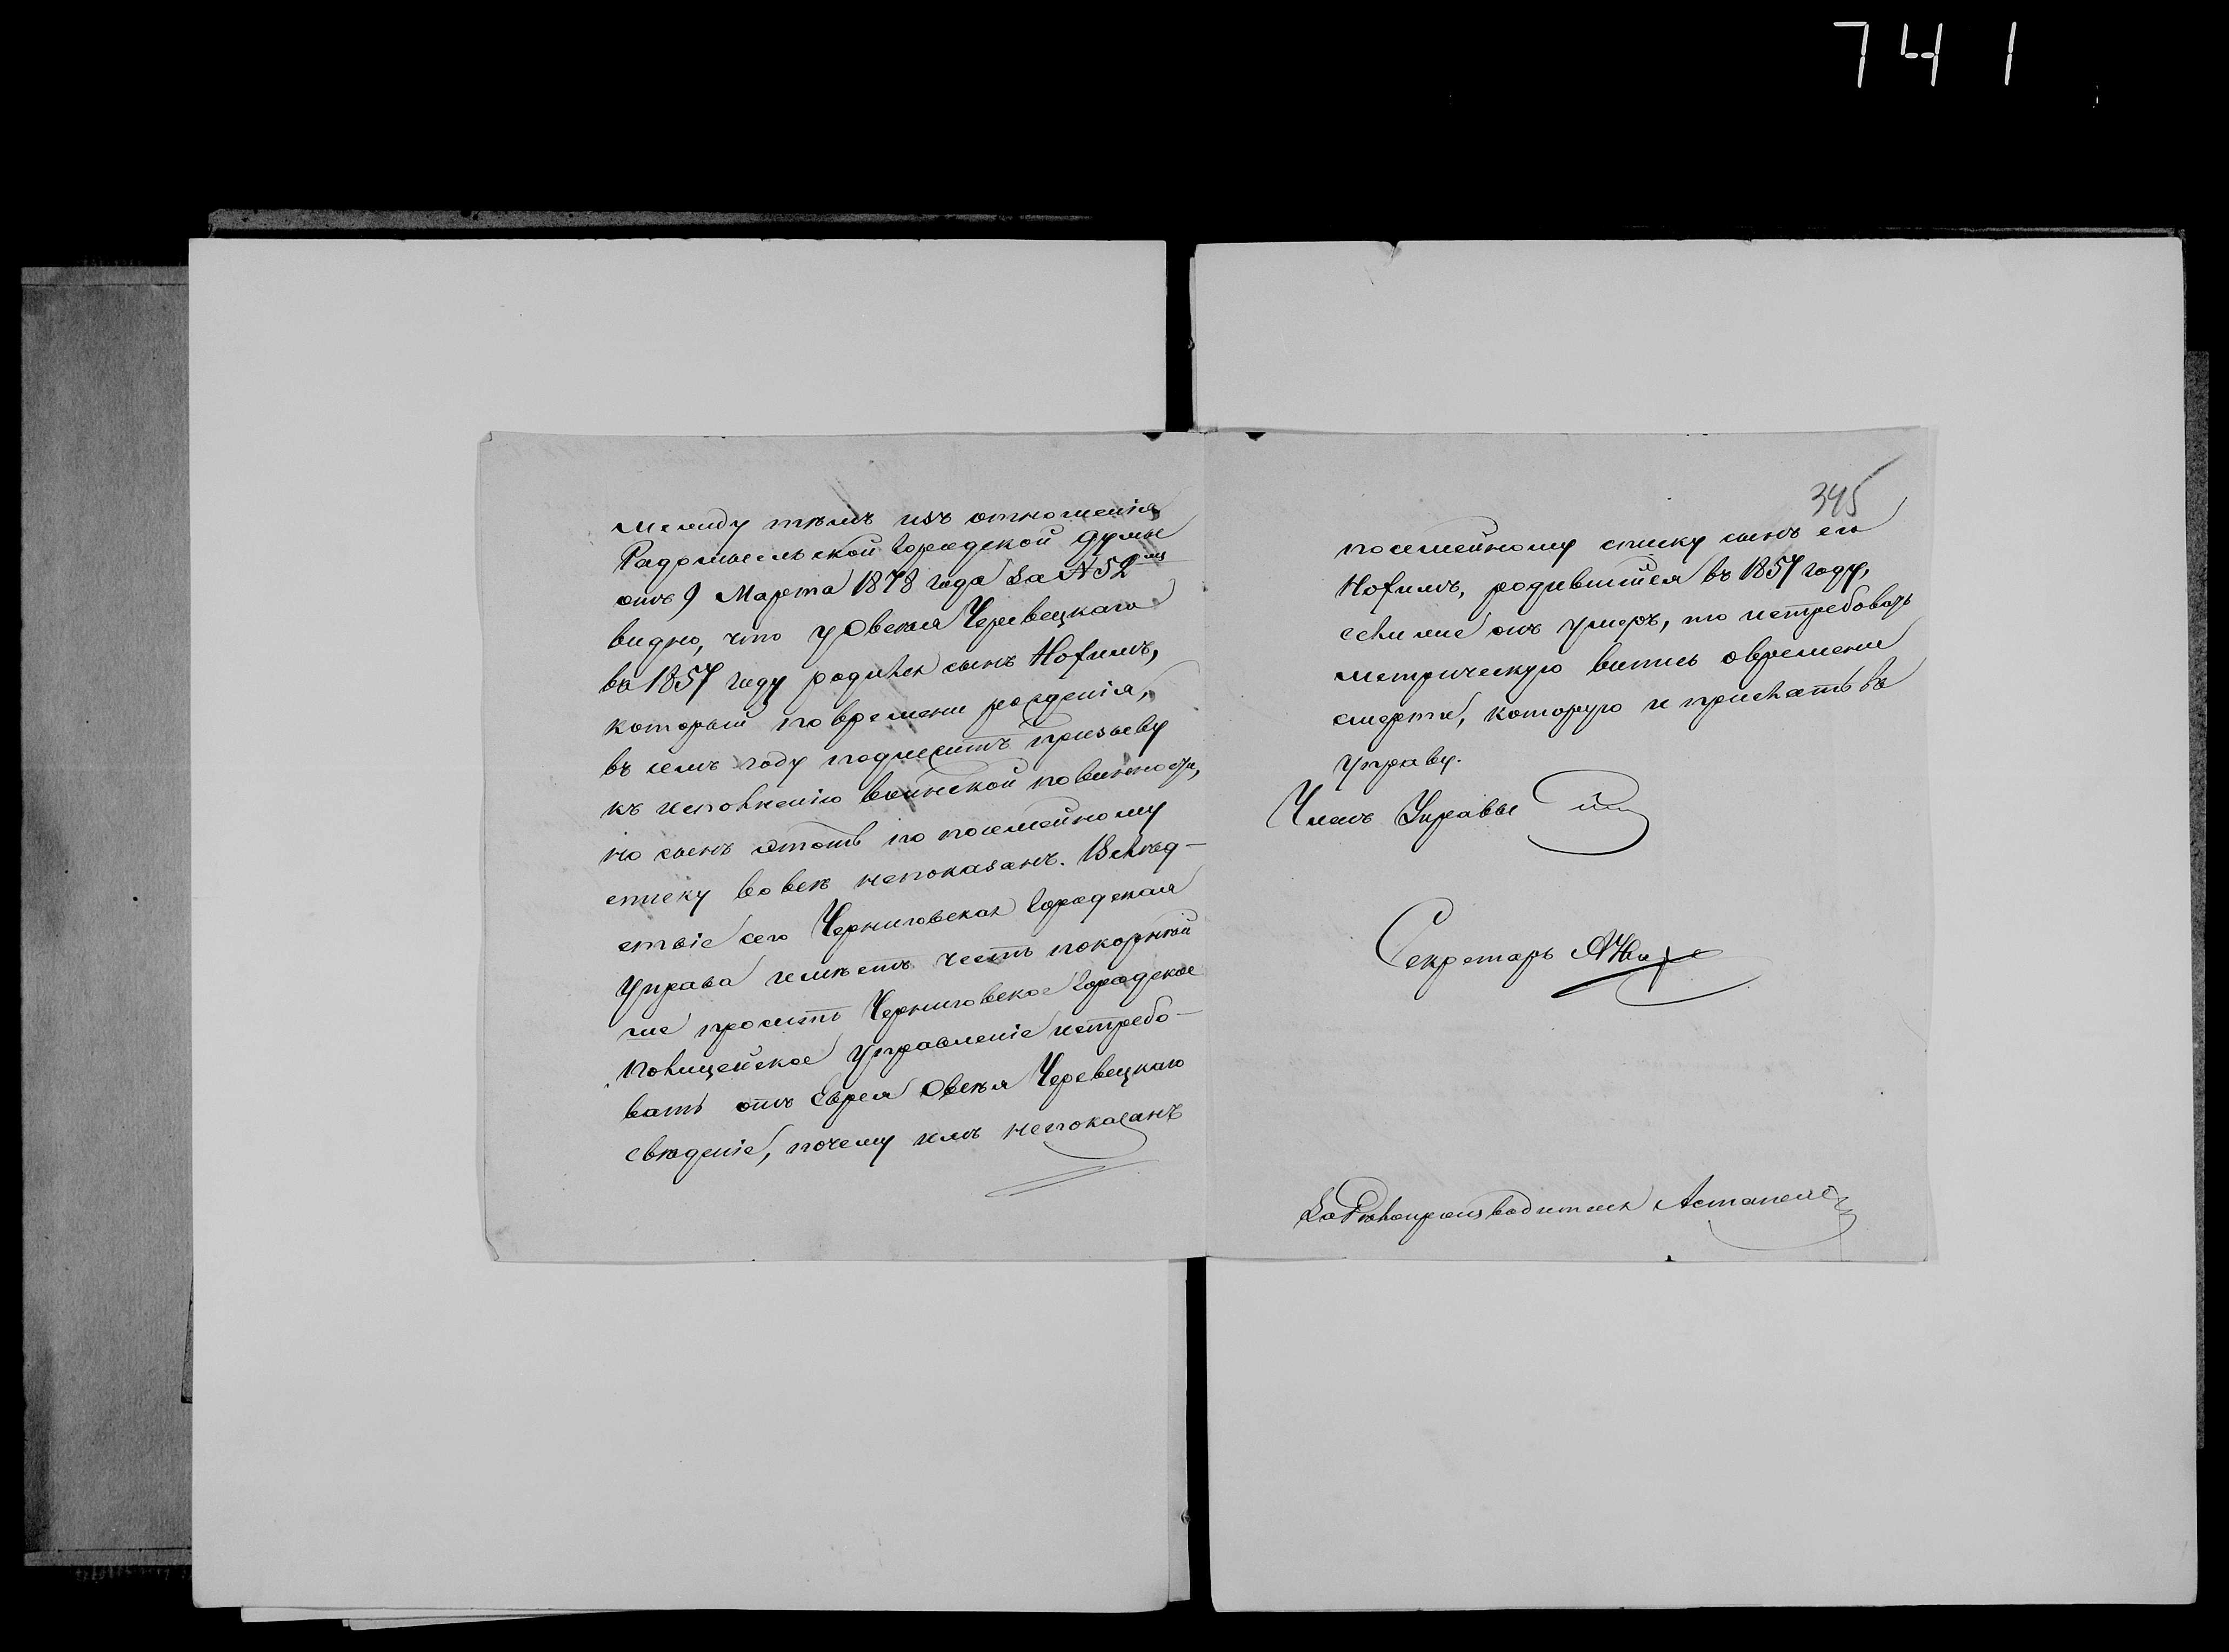 741
между тѣмъ изъ отношенія
Радомысльской Городской Думы
отъ 9 Марта 1878 года за № 52
видно, что у Овсея Черевецкаго
въ 1857 году родился сынъ Нохимъ,
который по времени рожденія,
въ семъ году подлежитъ призыву
къ исполненію воинской повинности,
но сынъ этотъ по посемейному
списку вовсе непоказанъ. Вслѣд-
ствіе сего Черниговская Городская
Управа имѣетъ честь покорнѣй
ше просить Черниговское Городское
Полицейское Управленіе истребо-
вать отъ Еврея Овсея Черевецкаго
свѣдѣніе, почему имъ непоказанъ
345
посемейному списку сынъ его
Нохимъ, родившійся въ 1857 году,
если же онъ умеръ, то истребовать
метрическую выпись о времени
смерти, которую и прислать въ
Управу.
Членъ Управы
Секретарь
За Дѣлопроизводителя